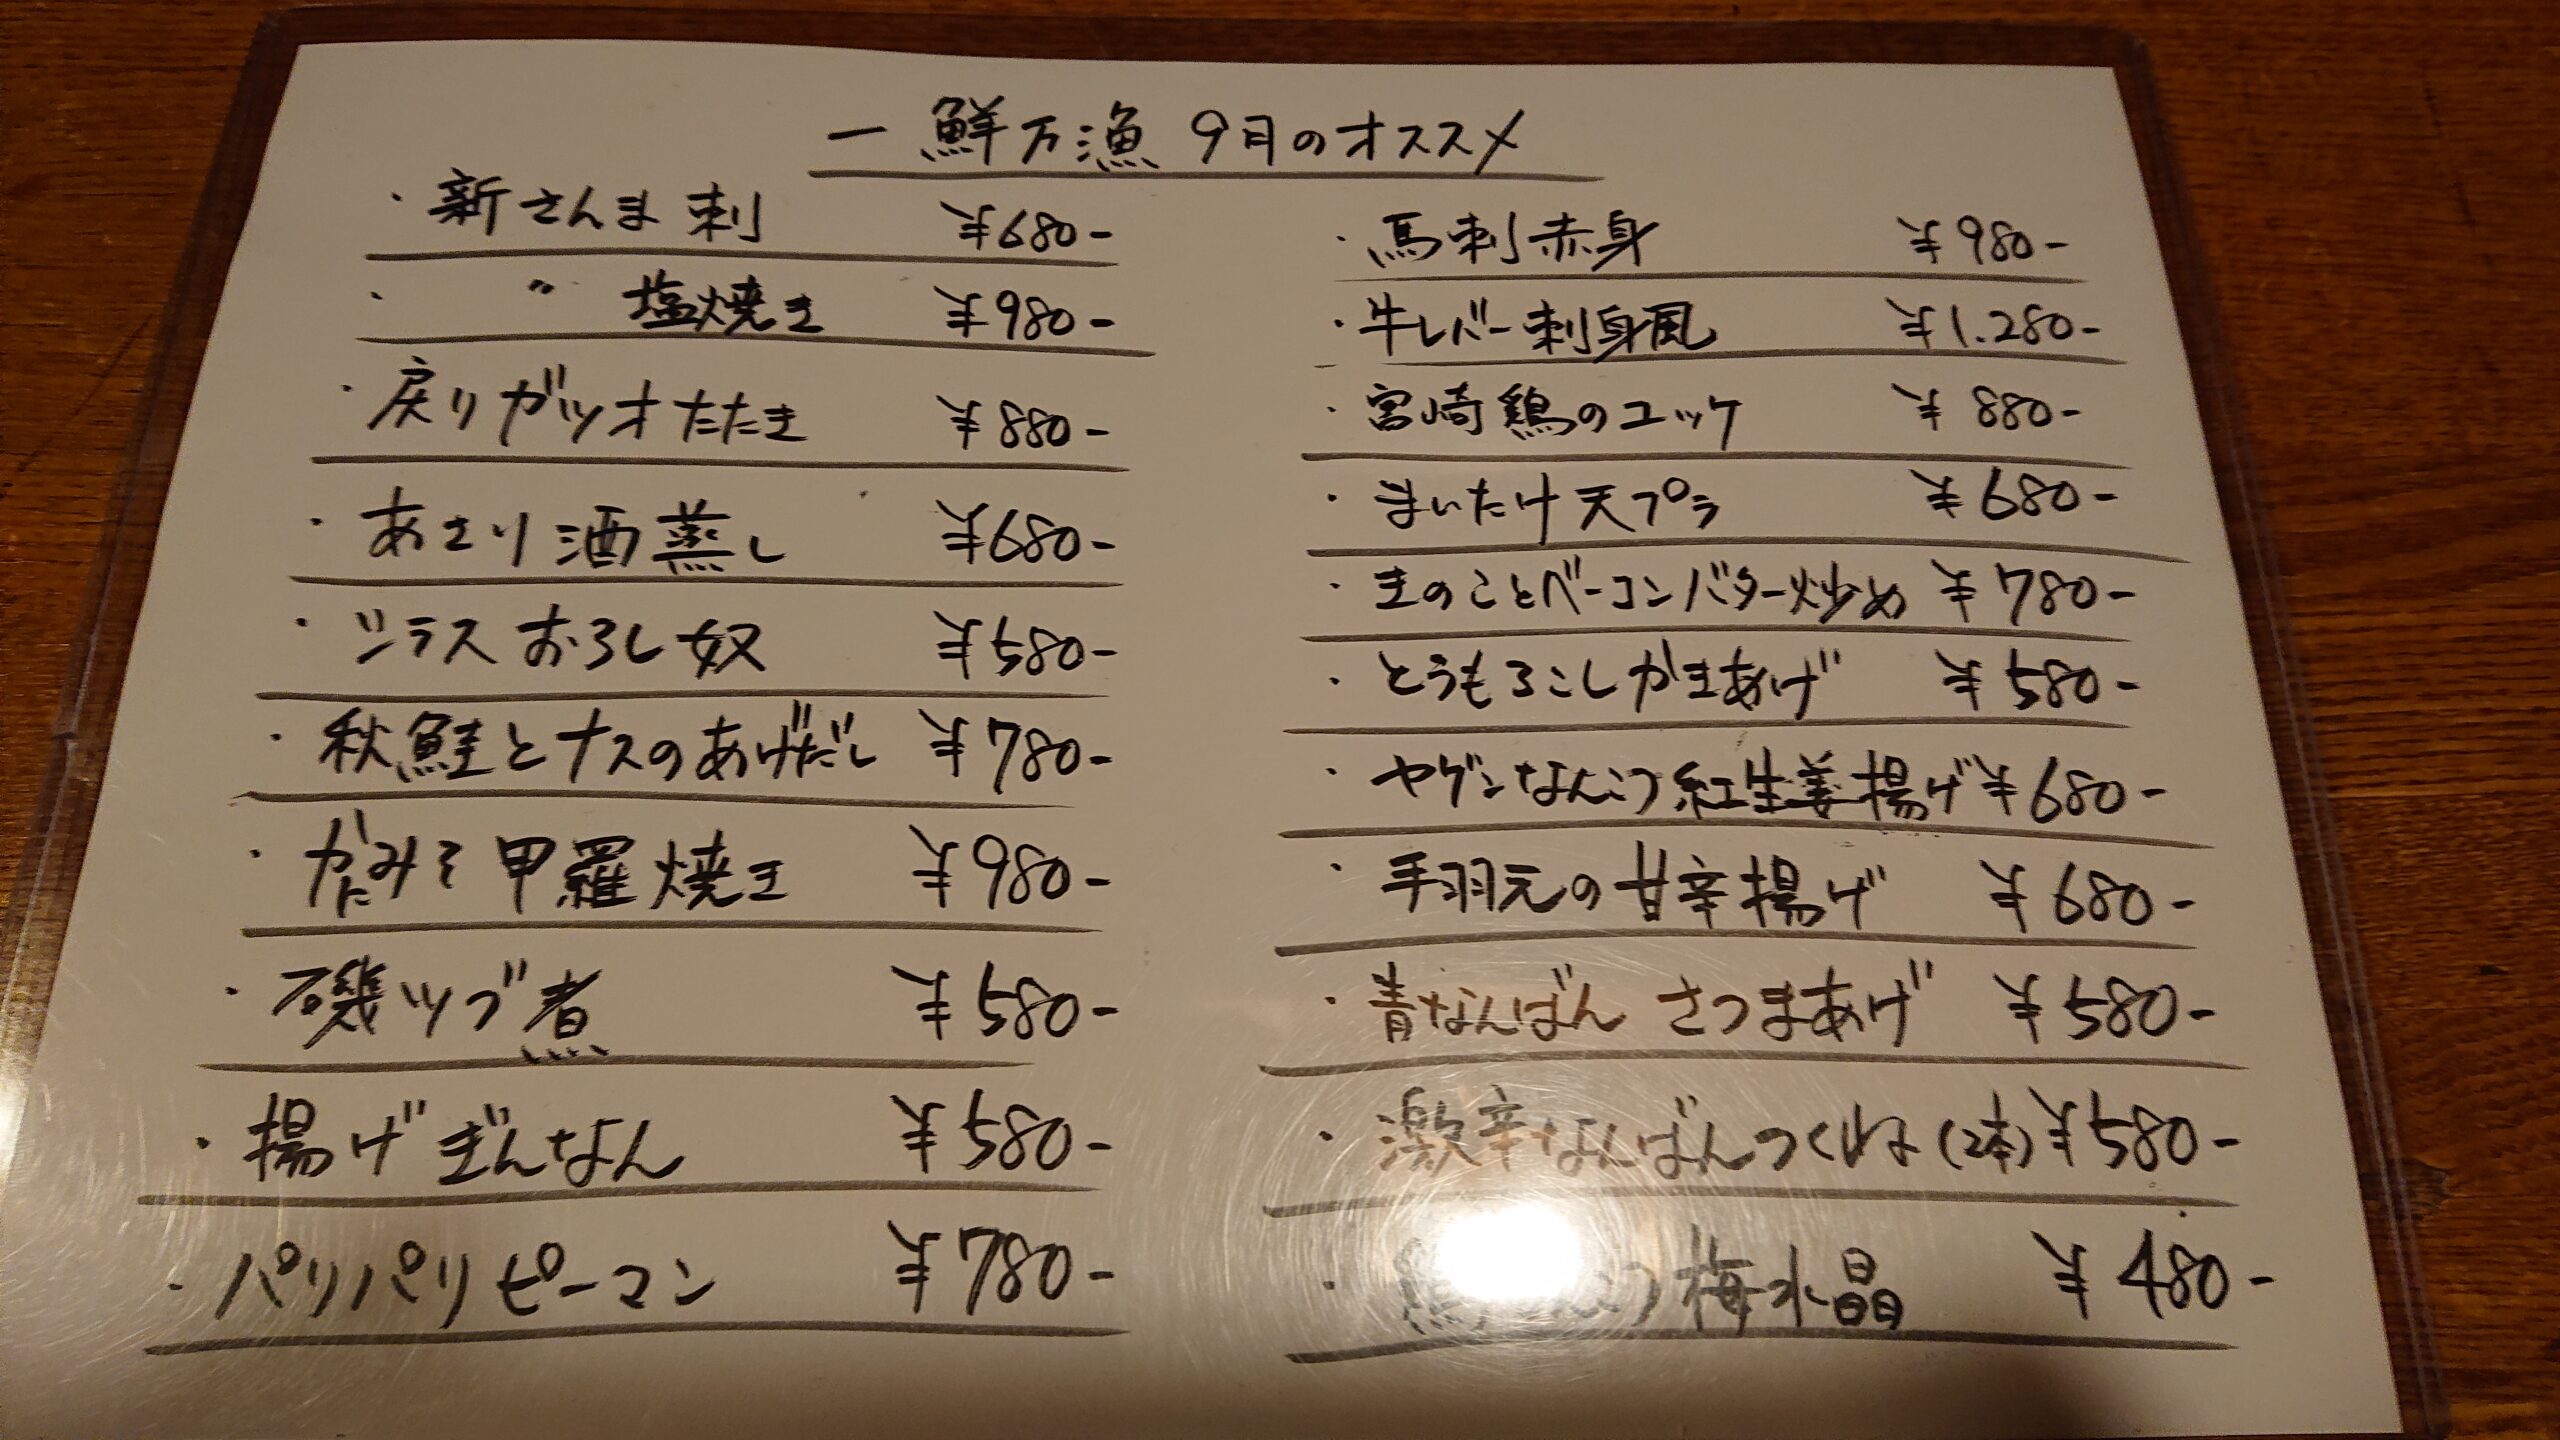 一鮮万漁 9月のオススメ
・新さんま刺 ¥680-
・〃 塩焼き ¥980-
・戻りガツオたたき ¥880-
・あさり酒蒸し ¥680-
・シラスおろし奴 ¥580-
・秋鮭とナスのあげだし ¥780-
・かにみそ甲羅焼き ¥980-
・磯ツブ煮 ¥580-
・揚げぎんなん ¥580-
・パリパリピーマン ¥780-
・馬刺赤身 ¥980-
・牛レバー刺身風 ¥1.280-
・宮崎鶏のユッケ ¥880-
・まいたけ天プラ ¥680-
・きのことベーコンバター炒め ¥780-
・とうもろこしかきあげ ¥580-
・ヤゲンなんこつ紅生姜揚げ ¥680-
・手羽元の甘辛揚げ ¥680-
・青なんばん さつまあげ ¥580-
・激辛なんばんつくね(2本) ¥580-
・梅水晶 ¥480-